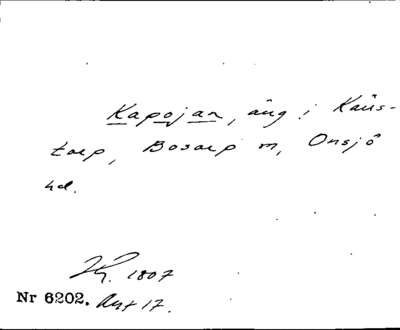 Kapojan, äng i Käns-
torp, Bosarp sn, Onsjö
hd.
1807
Nr 6202. Avt 17.